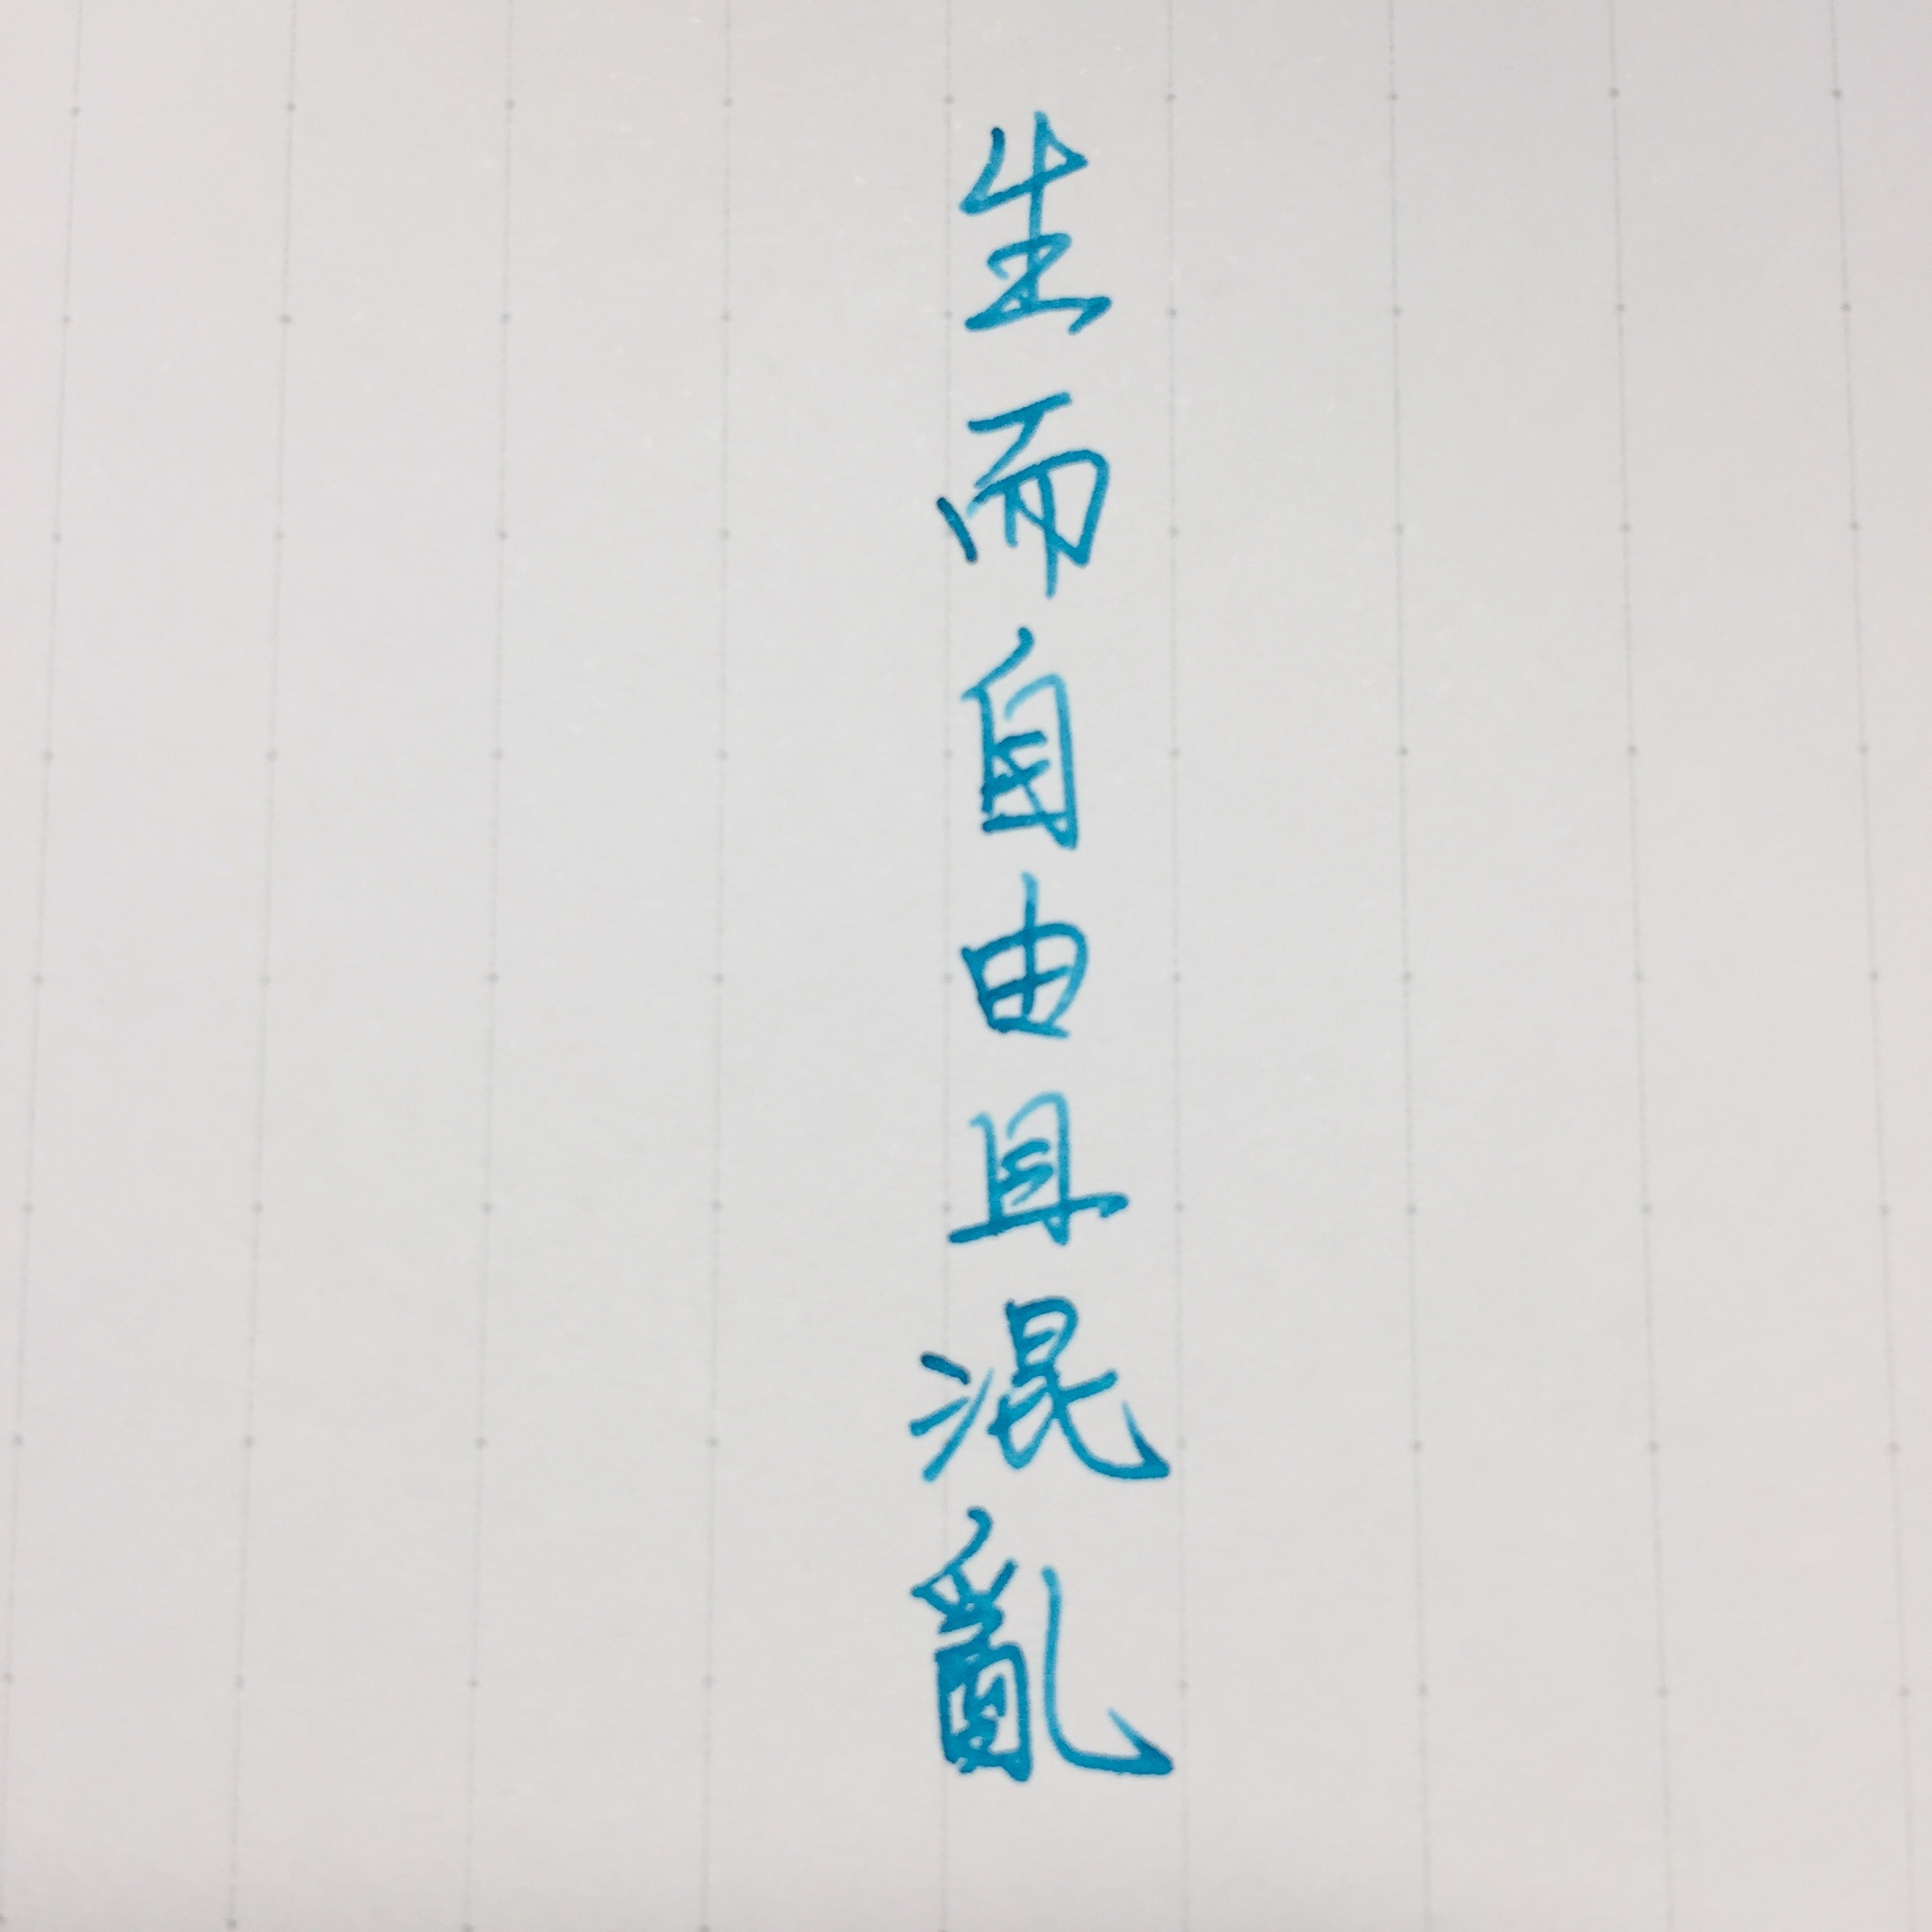 生而自由且混亂